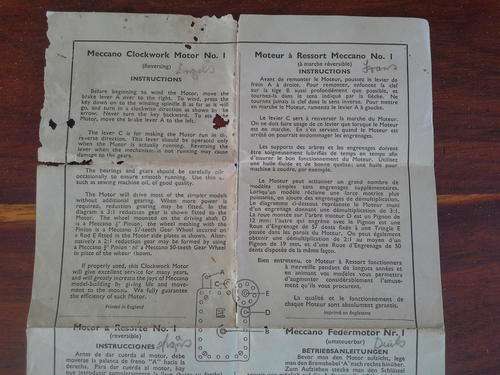 Meccano Clockwork Motor No. 1
(Reversing)
Engels
INSTRUCTIONS
Before beginning to wind the Motor, move the
brake lever A over to the right. To wind, press the
key down on to the winding spindle B as far as it will
go, and turn in a clockwise direction as shown by the
arrow. Never turn the key backward. To start the
Motor, move the brake lever A to the left.
The lever C is for making the Motor run in the
reverse direction. This lever should be operated only
when the Motor is actually running. Reversing the
lever when the mechanism is not running may cause
damage to the gears.
The bearings and gears should be carefully oiled
occasionally, to ensure smooth running. Use thin oil,
such as sewing machine oil, of good quality.
The Motor will drive most of the simpler models
without additional gearing. When more power is
required, reduction gearing may be fitted. In the
diagram a 3:1 reduction gear is shown fitted to the
Motor. The wheel mounted on the driving shaft D
is a Meccano Pinion, the wheel meshing with this
Pinion is a Meccano 57-teeth Gear Wheel mounted on
a Rod E fitted in the Motor side plates as shown. Alter-
natively a 2:1 reduction gear may be formed by using
a Meccano Pinion and a Meccano 50-teeth Gear Wheel
in place of the wheel shown.
If properly used, this Clockwork Motor
will give excellent service for many years,
and will greatly increase the joys of Meccano
model-building by giving life and move-
ment to the models. We fully guarantee
the efficiency of each Motor.
Printed in England
Moteur à Ressort Meccano No. 1
(à marche réversible)
Frans
INSTRUCTIONS
Avant de remonter le Moteur, poussez le levier de
frein A à droite. Pour remonter, enfoncez la clef
sur la tige B aussi profondément que possible, et
tournez-la dans le sens indiqué par la flèche. Ne
tournez jamais la clef dans le sens inverse. Pour mettre
en marche le Moteur, ramenez le levier A à gauche.
Le levier C sert à renverser la marche du Moteur.
On ne doit faire usage de ce levier que lorsque le Moteur
est en marche. En s'en servant quand le Moteur est
arrêté on pourrait endommager les engrenages.
Les supports des arbres et les engrenages doivent
être soigneusement lubrifiés de temps en temps afin
d'assurer le bon fonctionnement du Moteur. Utilisez
une huile fluide et de bonne qualité; une huile pour
machine à coudre, par exemple.
Le Moteur peut actionner un grand nombre de
modèles simples sans engrenages supplémentaires.
Lorsqu'un modèle réclame une force motrice plus
puissante, on ajoute des engrenages de démultiplication.
Le diagramme ci-dessus représente le Moteur muni
d'un engrenage donnant une démultiplication de 3:1.
La roue montée sur l'arbre moteur D est un Pignon de
12 mm; l'autre qui engrène avec le Pignon est une
Roue d'Engrenage de 57 dents fixée à une Tringle E
passée dans les parois du Moteur. On peut également
obtenir une démultiplication de 2:1 au moyen d'un
Pignon de 19 mm. et d'une Roue d'Engrenage de 50
dents disposés de la même façon.
Bien entretenu, ce Moteur à Ressort fonctionnera
à merveille pendant de longues années et
en animant vos modèles vous permettra
d'augmenter considérablement l'amuse-
ment qu'ils vous procurent.
La qualité et le fonctionnement de
chaque Moteur sont absolument garantis.
Imprimé en Angleterre
A
C
B
E
D
Motor a Resorte No. 1
(reversible)
INSTRUCCIONES
Antes de dar cuerda al motor, debe
moverse la palanca de freno "A" hacia la
derecha. Para dar cuerda al motor, hay
Meccano Federmotor Nr. 1
(umsteuerbar)
Duits
BETRIEBSANLEITUNGEN
Bevor man den Motor aufzieht, lege
man den Bremshebel "A" nach rechts hinüber.
Zum Aufziehen stecke man den Schlüssel